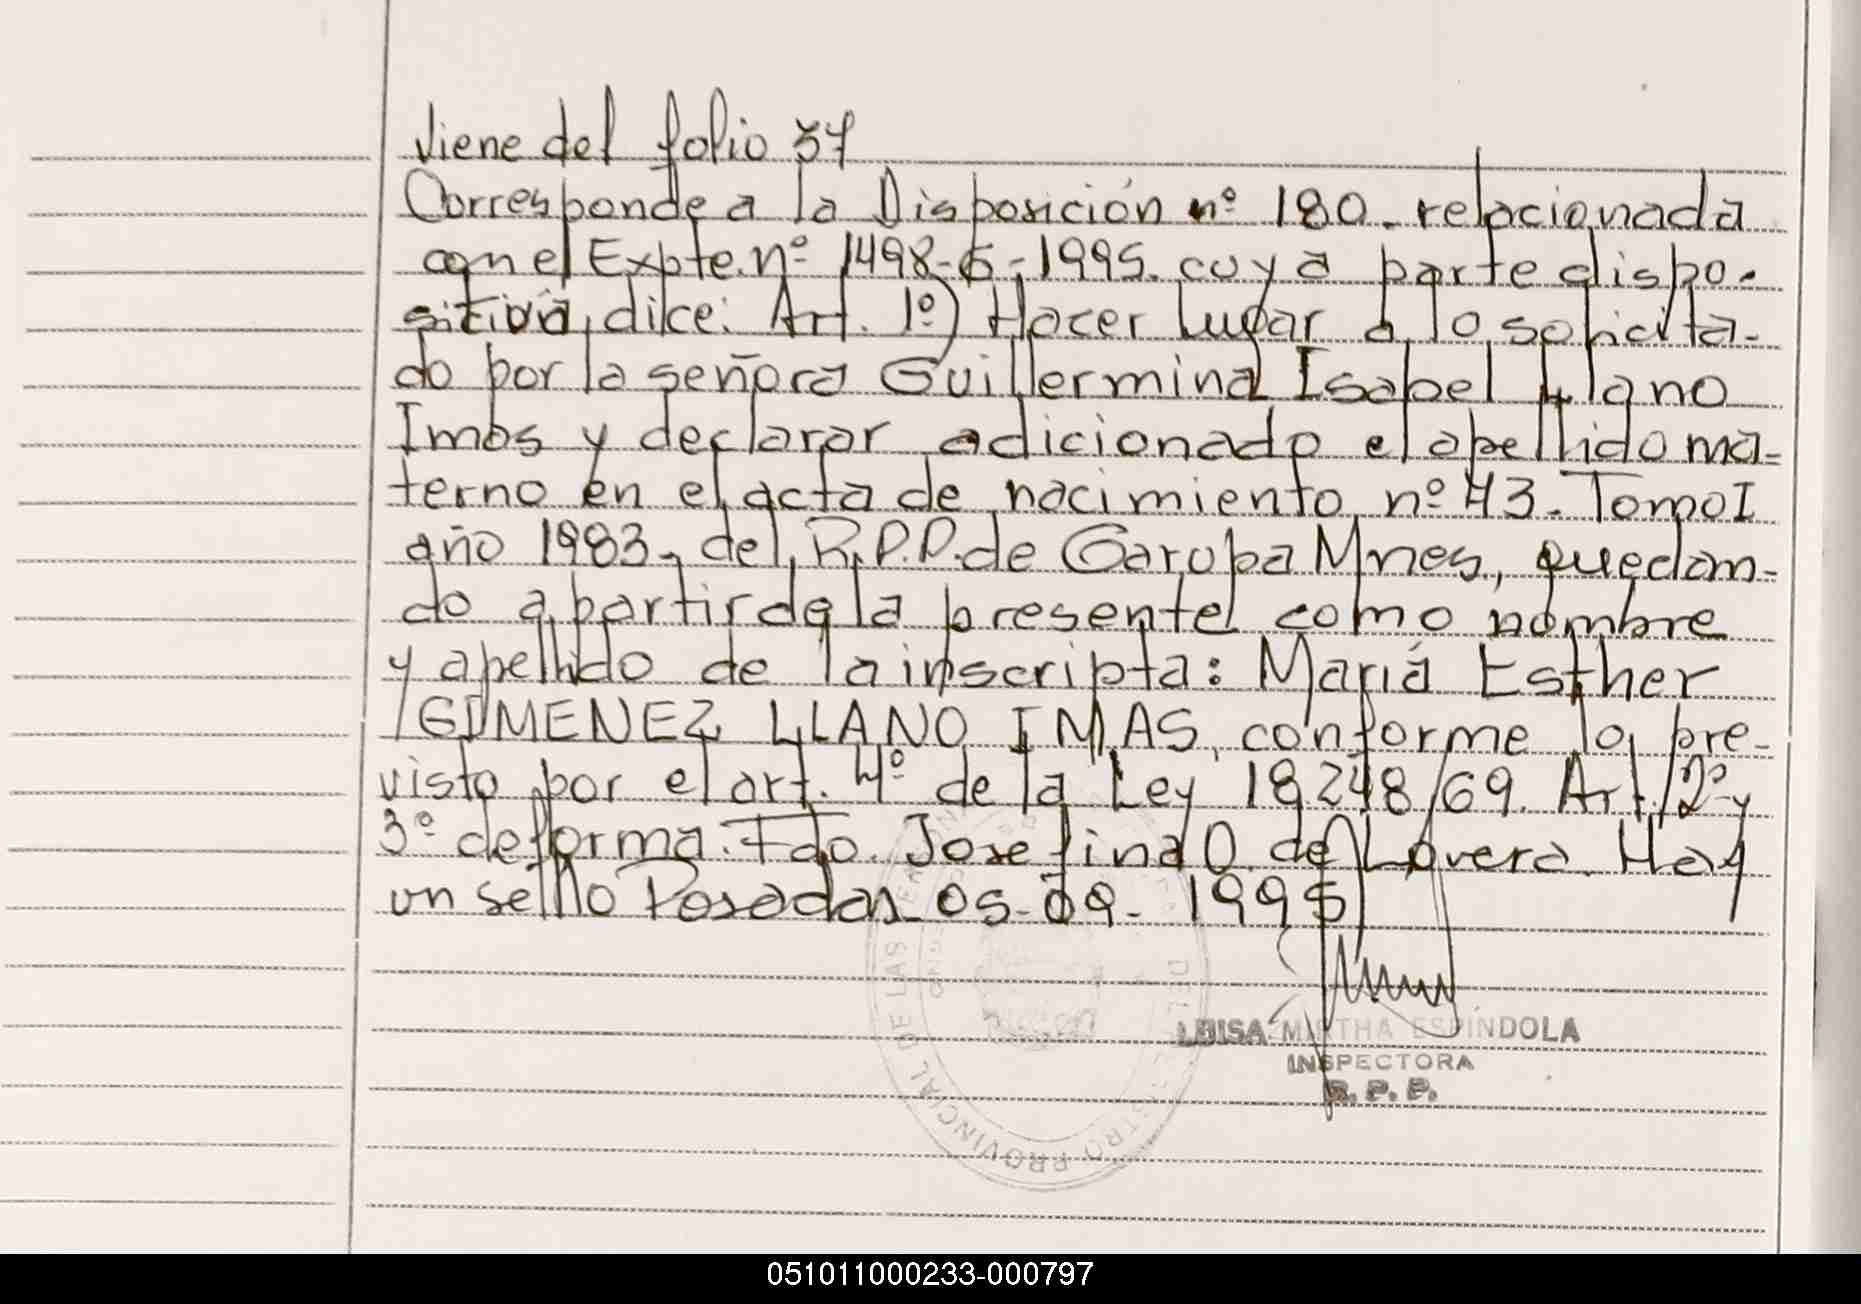 Viene del folio 37
Corresponde a la Disposición nº 180. relacionada
con el Expte. nº 1498-G-1995. cuya parte dispo-
sitiva, dice: Art. 1º) Hacer Lugar a lo solicita-
do por la señora Guillermina Isabel Llano
Imas y declarar adicionado el apellido ma-
terno en el acta de nacimiento nº 43. Tomo I
año 1983, del R.P.P. de Garupa Mnes, quedan-
do a partir de la presente como nombre
y apellido de la inscripta: María Esther
GIMENEZ LLANO IMAS, conforme lo pre-
visto por el art. 4º de la Ley 18.248/69. Art. 2º y
3º de forma. Fdo. Josefina O. de Lovera. Hay
un sello Posadas 05-09-1995
LUISA MIRTHA ESPINDOLA
INSPECTORA
R. P. P.
PROVINCIAL DE LAS
051011000233-000797